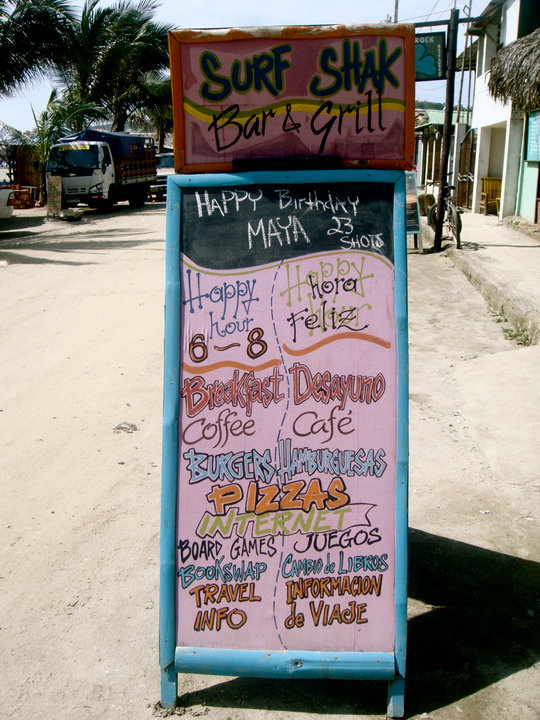 SURF SHAK
Bar & Grill
ROCK
HAPPY Birthday
MAYA 23
SHOTS
Happy hour
6-8
Happy hour
hora Feliz
Breakfast Desayuno
Coffee Café
BURGERS HAMBURGUESAS
PIZZAS
INTERNET
BOARD GAMES JUEGOS
BOOKSWAP CAMBIO de LIBROS
TRAVEL INFORMACION
INFO de VIAJE